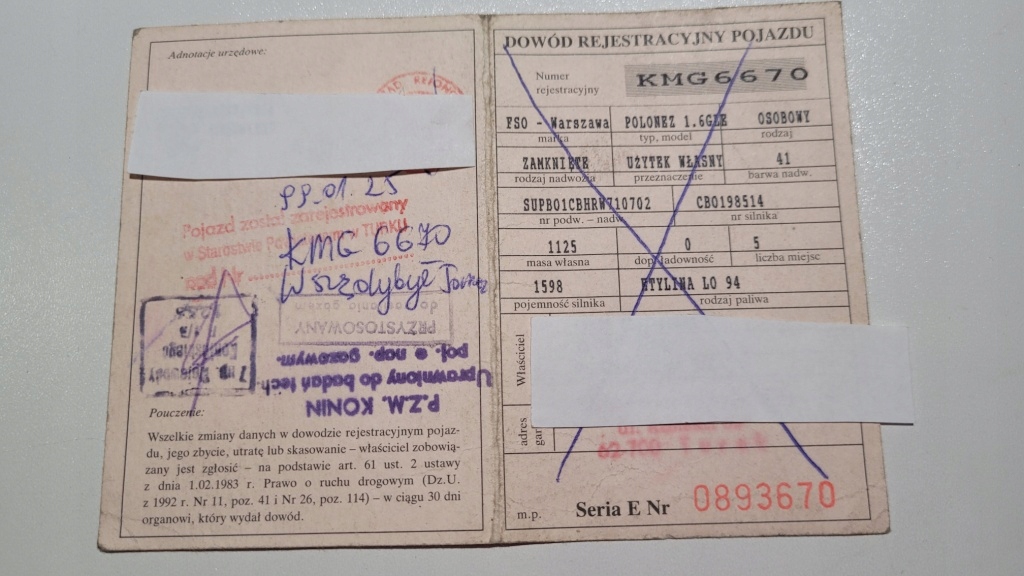 Adnotacje urzędowe:
99.01.25
Pojazd został zarejestrowany
w Starostwie w TURKU
pod Nr
KMG 6670
PRZYSTOSOWANY
do zasilania gazem
P.Z.M. KONIN
Uprawniony do badań tech.
poj. o nap. gazowym.
Pouczenie:
Wszelkie zmiany danych w dowodzie rejestracyjnym pojaz-
du, jego zbycie, utratę lub skasowanie – właściciel zobowią-
zany jest zgłosić – na podstawie art. 61 ust. 2 ustawy
z dnia 1.02.1983 r. Prawo o ruchu drogowym (Dz.U.
z 1992 r. Nr 11, poz. 41 i Nr 26, poz. 114) – w ciągu 30 dni
organowi, który wydał dowód.
DOWÓD REJESTRACYJNY POJAZDU
Numer
rejestracyjny
KMG6670
FSO - Warszawa POLONEZ 1.6GLE OSOBOWY
marka typ, model rodzaj
ZAMKNIĘTE UŻYTEK WŁASNY 41
rodzaj nadwozia przeznaczenie barwa nadw.
SUPB01CBHRW710702 CB0198514
nr podw. – nadw. nr silnika
1125 0 5
masa własna dop. ładowność liczba miejsc
1598 ETYLINA LO 94
pojemność silnika rodzaj paliwa
Właściciel
adres
ul.
62-700 Turek
m.p. Seria E Nr 0893670